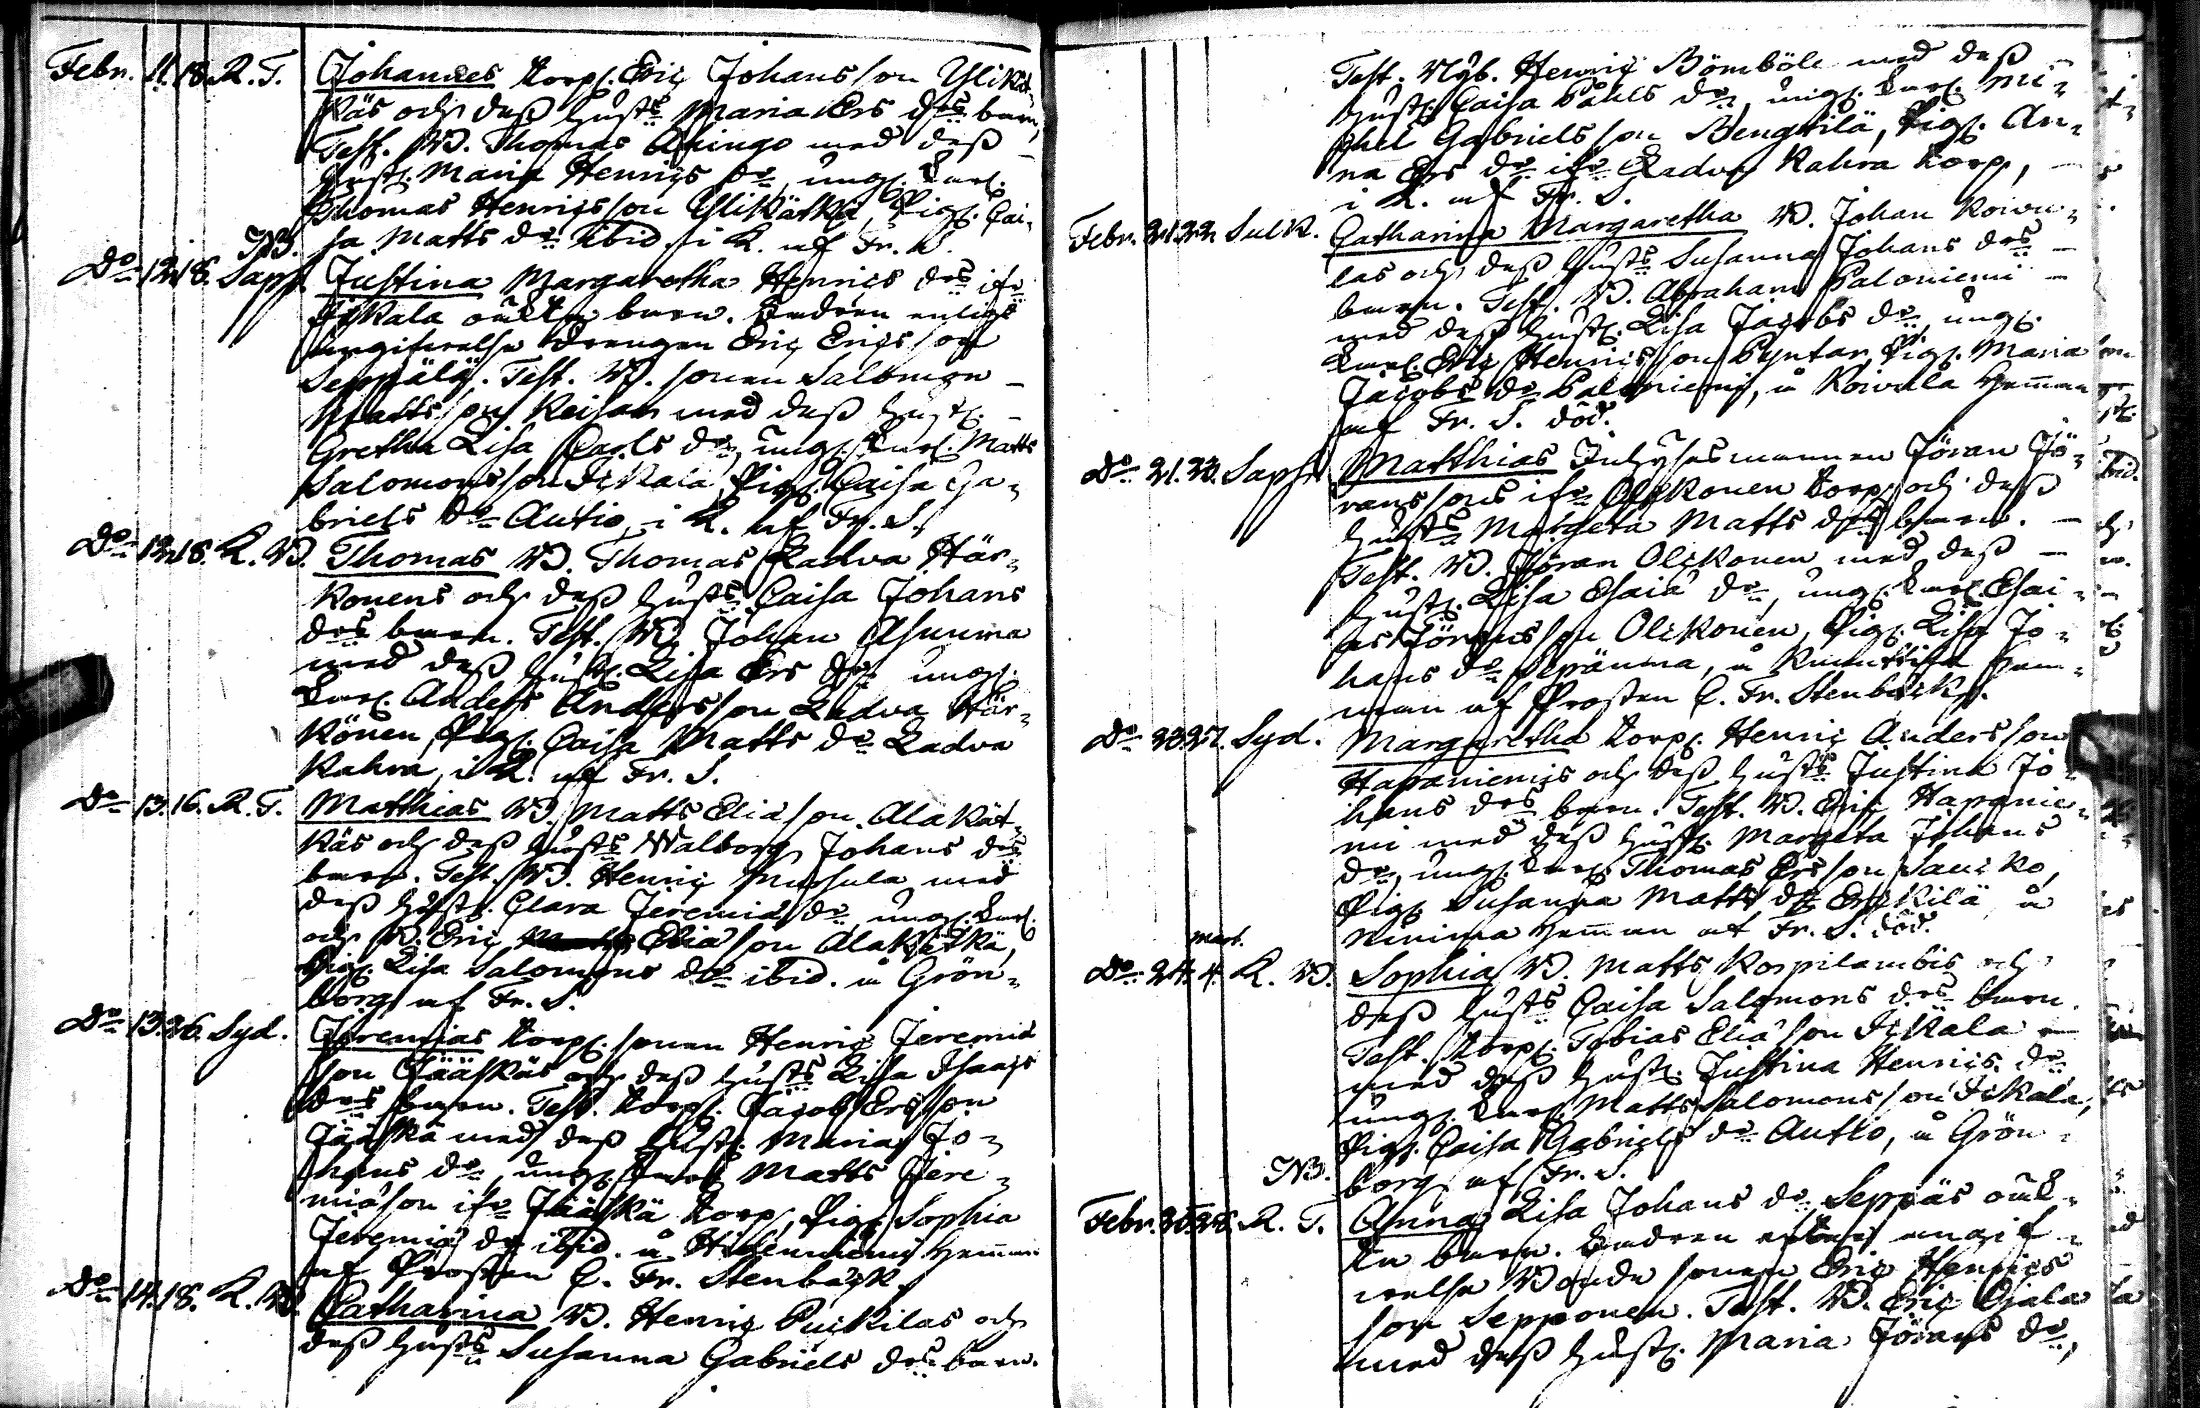 Febr. 11. 18. R. T. Johannes Torp. Eric Johansson Ylikät-
käs och deß hust. Maria Ers drs barn,
Test. B. Thomas Ahingo med deß
hust. Maria Henrics dr, ungk. Karl.
Thomas Henricsson Ylikätkä, Pig. Cai-
sa Matts dr ibid. i K. af Fr. S.
NB.
Do 12. 18. Sapf. Justina Margaretha Henrics drs ifr.
Iskala oäkta barn. Fadren enligt
angifvelse Drengen Eric Ericsson
Seppälä. Test. B. sonen Salomon
Mattsson Keisar med deß hust.
Gretha Lisa Carls dr, ungk. Karl. Matts
Salomonsson Iskala, Pig. Caisa Ga-
briels dr Autio, i K. af Fr. S.
Do 12. 18. K. B. Thomas B. Thomas Ladva Här-
konens och deß hust. Caisa Johans
drs barn. Test. B. Johan Asunma
med deß hust. Lisa Ers dr, ungk.
Karl. Anders Andersson Ladva Här-
könen, Pig. Caisa Matts dr Ladva
Kahra, i K. af Fr. S.
Do 13. 16. R. T. Matthias B. Matts Eliasson Alakät-
käs och deß hust. Walborg Johans drs
barn. Test. B. Henric Mursula med
deß hust. Clara Jeremiæ dr, ungk. Karl.
och B. Eric Eliasson Alakätkä,
Pig. Lisa Salomons dr ibid. å Grön-
borg af Fr. S.
Do 13. 26. Syd. Jeremias Torp. sonen Henric Jeremiæ
son Jääskäs och deß hust. Lisa Isaacs
drs barn. Test. Torp. Jacob Ersson
Jääskä med deß hust. Maria Jo-
hans dr, ungk. Karl. Matts Jere-
miæson ifr. Jääskä Torp, Pig. Sophia
Jeremiæ dr ibid. å Hietaniemi Hemman
af Prosten C. Fr. Stenbäck.
Do 14. 18. K. B. Catharina B. Henric Puckilas och
deß hust. Susanna Gabriels drs barn.
Test. Nyb. Henric Bömböle med deß
hust. Caisa Påhls dr, ungk. Karl. Mi-
chel Gabrielsson Bengtilä, Pig. An-
na Ers dr ifr. Ladva Kahra Torp,
i K. af Fr. S.
Febr. 21. 22. Sulk. Catharina Margaretha B. Johan Koivu-
las och deß hust. Susanna Johans drs
barn. Test. B. Abraham Paloniemi
med deß hust. Lisa Jacobs dr, ungk.
Karl. Eric Henricsson Pyntar, Pig. Maria
Jacobs dr Paloniemi, å Koivula Hemman
af Fr. S. död.
Do 21. 23. Sapf. Matthias Inhysesmannen Jöran Jö-
ranssons ifr. Olckonen Torp och deß
hust. Margeta Matts drs barn.
Test. B. Jöran Olckonen med deß
hust. Lisa Esaiæ dr, ungk. Karl. Esai-
as Jöransson Olckonen, Pig. Lisa Jo-
hans dr, å Knuuttila Hem-
man af Prosten C. Fr. Stenbäck.
Do 23. 27. Syd. Margaretha Torp. Henric Andersson
Haparniemis och deß hust. Justina Jo-
hans drs barn. Test. B. Eric Haparnie-
mi med deß hust. Margeta Johans
dr, ungk. Karl. Thomas Ersson Saucko,
Pig. Susanna Matts dr Erckilä å
Niemimaa Hemman af Fr. S. död.
Mart.
Do 24. 4. K. B. Sophia B. Matts Korpilambis och
deß hust. Caisa Salomons drs barn.
Test. Torp. Tobias Eliæson Iskala
med deß hust. Justina Henrics dr,
ungk. Karl. Matts Salomonsson Iskala,
Pig. Caisa Gabriels dr Autio, å Grön-
borg af Fr. S.
NB.
Febr. 25. 28. R. T. Anna Lisa Johans dr Seppäs oäk-
ta barn. Fadren enligt angif-
velse Bonde sonen Eric Henrics
son Sepponen. Test. B. Eric Ojala
med deß hust. Maria Jörans dr,